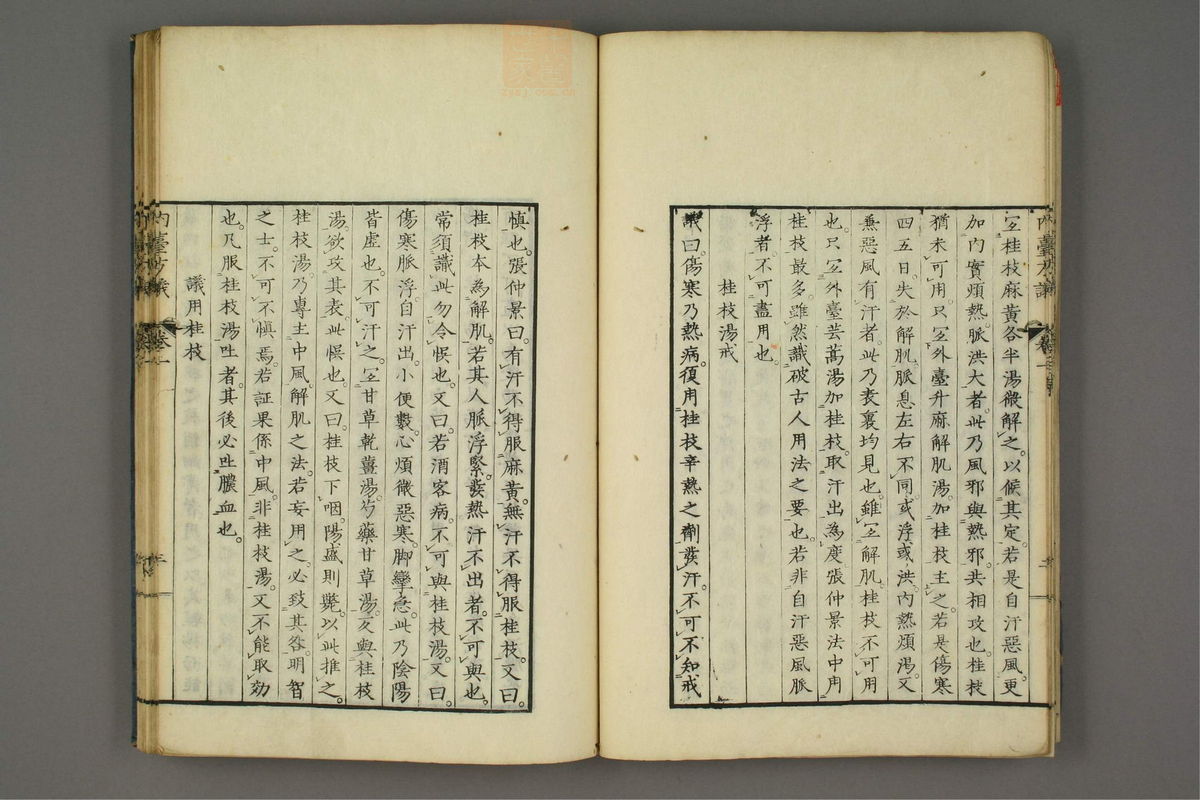 宜桂枝麻黃各半湯微解之以候其定若是自汗惡風更
加內實煩熱脈洪大者此乃風邪與熱邪共相攻也桂枝
猶未可用只宜外臺升麻解肌湯加桂枝主之若是傷寒
四五日失於解肌脈息左右不同或浮或洪內熱煩渴又
無惡風有汗者此乃表裏均見也雖宜解肌桂枝不可用
也只宜外臺芸薖湯加桂枝取汗出為度張仲景法中用
桂枝最多雖然識破古人用法之要也若非自汗惡風脈
浮者不可盡用也
桂枝湯戒
議曰傷寒乃熱病復用桂枝辛熱之劑發汗不可不知戒
慎也張仲景曰有汗不得服麻黃無汗不得服桂枝又曰
桂枝本為解肌若其人脈浮緊發熱汗不出者不可與也
常須識此勿令悞也又曰若酒客病不可與桂枝湯又曰
傷寒脈浮自汗出小便數心煩微惡寒脚攣急此乃陰陽
皆虛也不可汗之宜甘草乾薑湯芍藥甘草湯反與桂枝
湯欲攻其表此悞也又曰桂枝下咽陽盛則斃以此推之
桂枝湯乃專主中風解肌之法若妄用之必致其咎明智
之士不可不慎焉若証果係中風非桂枝湯又不能取効
也凡服桂枝湯吐者其後必吐膿血也
議用桂枝